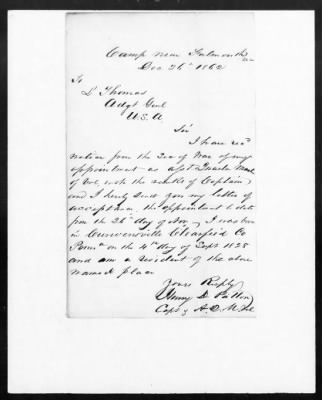 Camp near Falmouth Va
Dec 26th 1862
To
L Thomas
Adgt Genl
U.S.A
Sir
I have recd
notice from the Sec of War of my
appointment as asst Quarter Mast
of Vol, with the rank of Captain,
and I hereby send you my letter of
acceptance the appointment to date
from the 26th day of Nov, I was born
in Curwensville Clearfield Co
Penna on the 4th day of Sept 1828
and am a resident of the above
named place
Yours Respfy
Henry D. Patton
Capt & A.Q.M. Vol